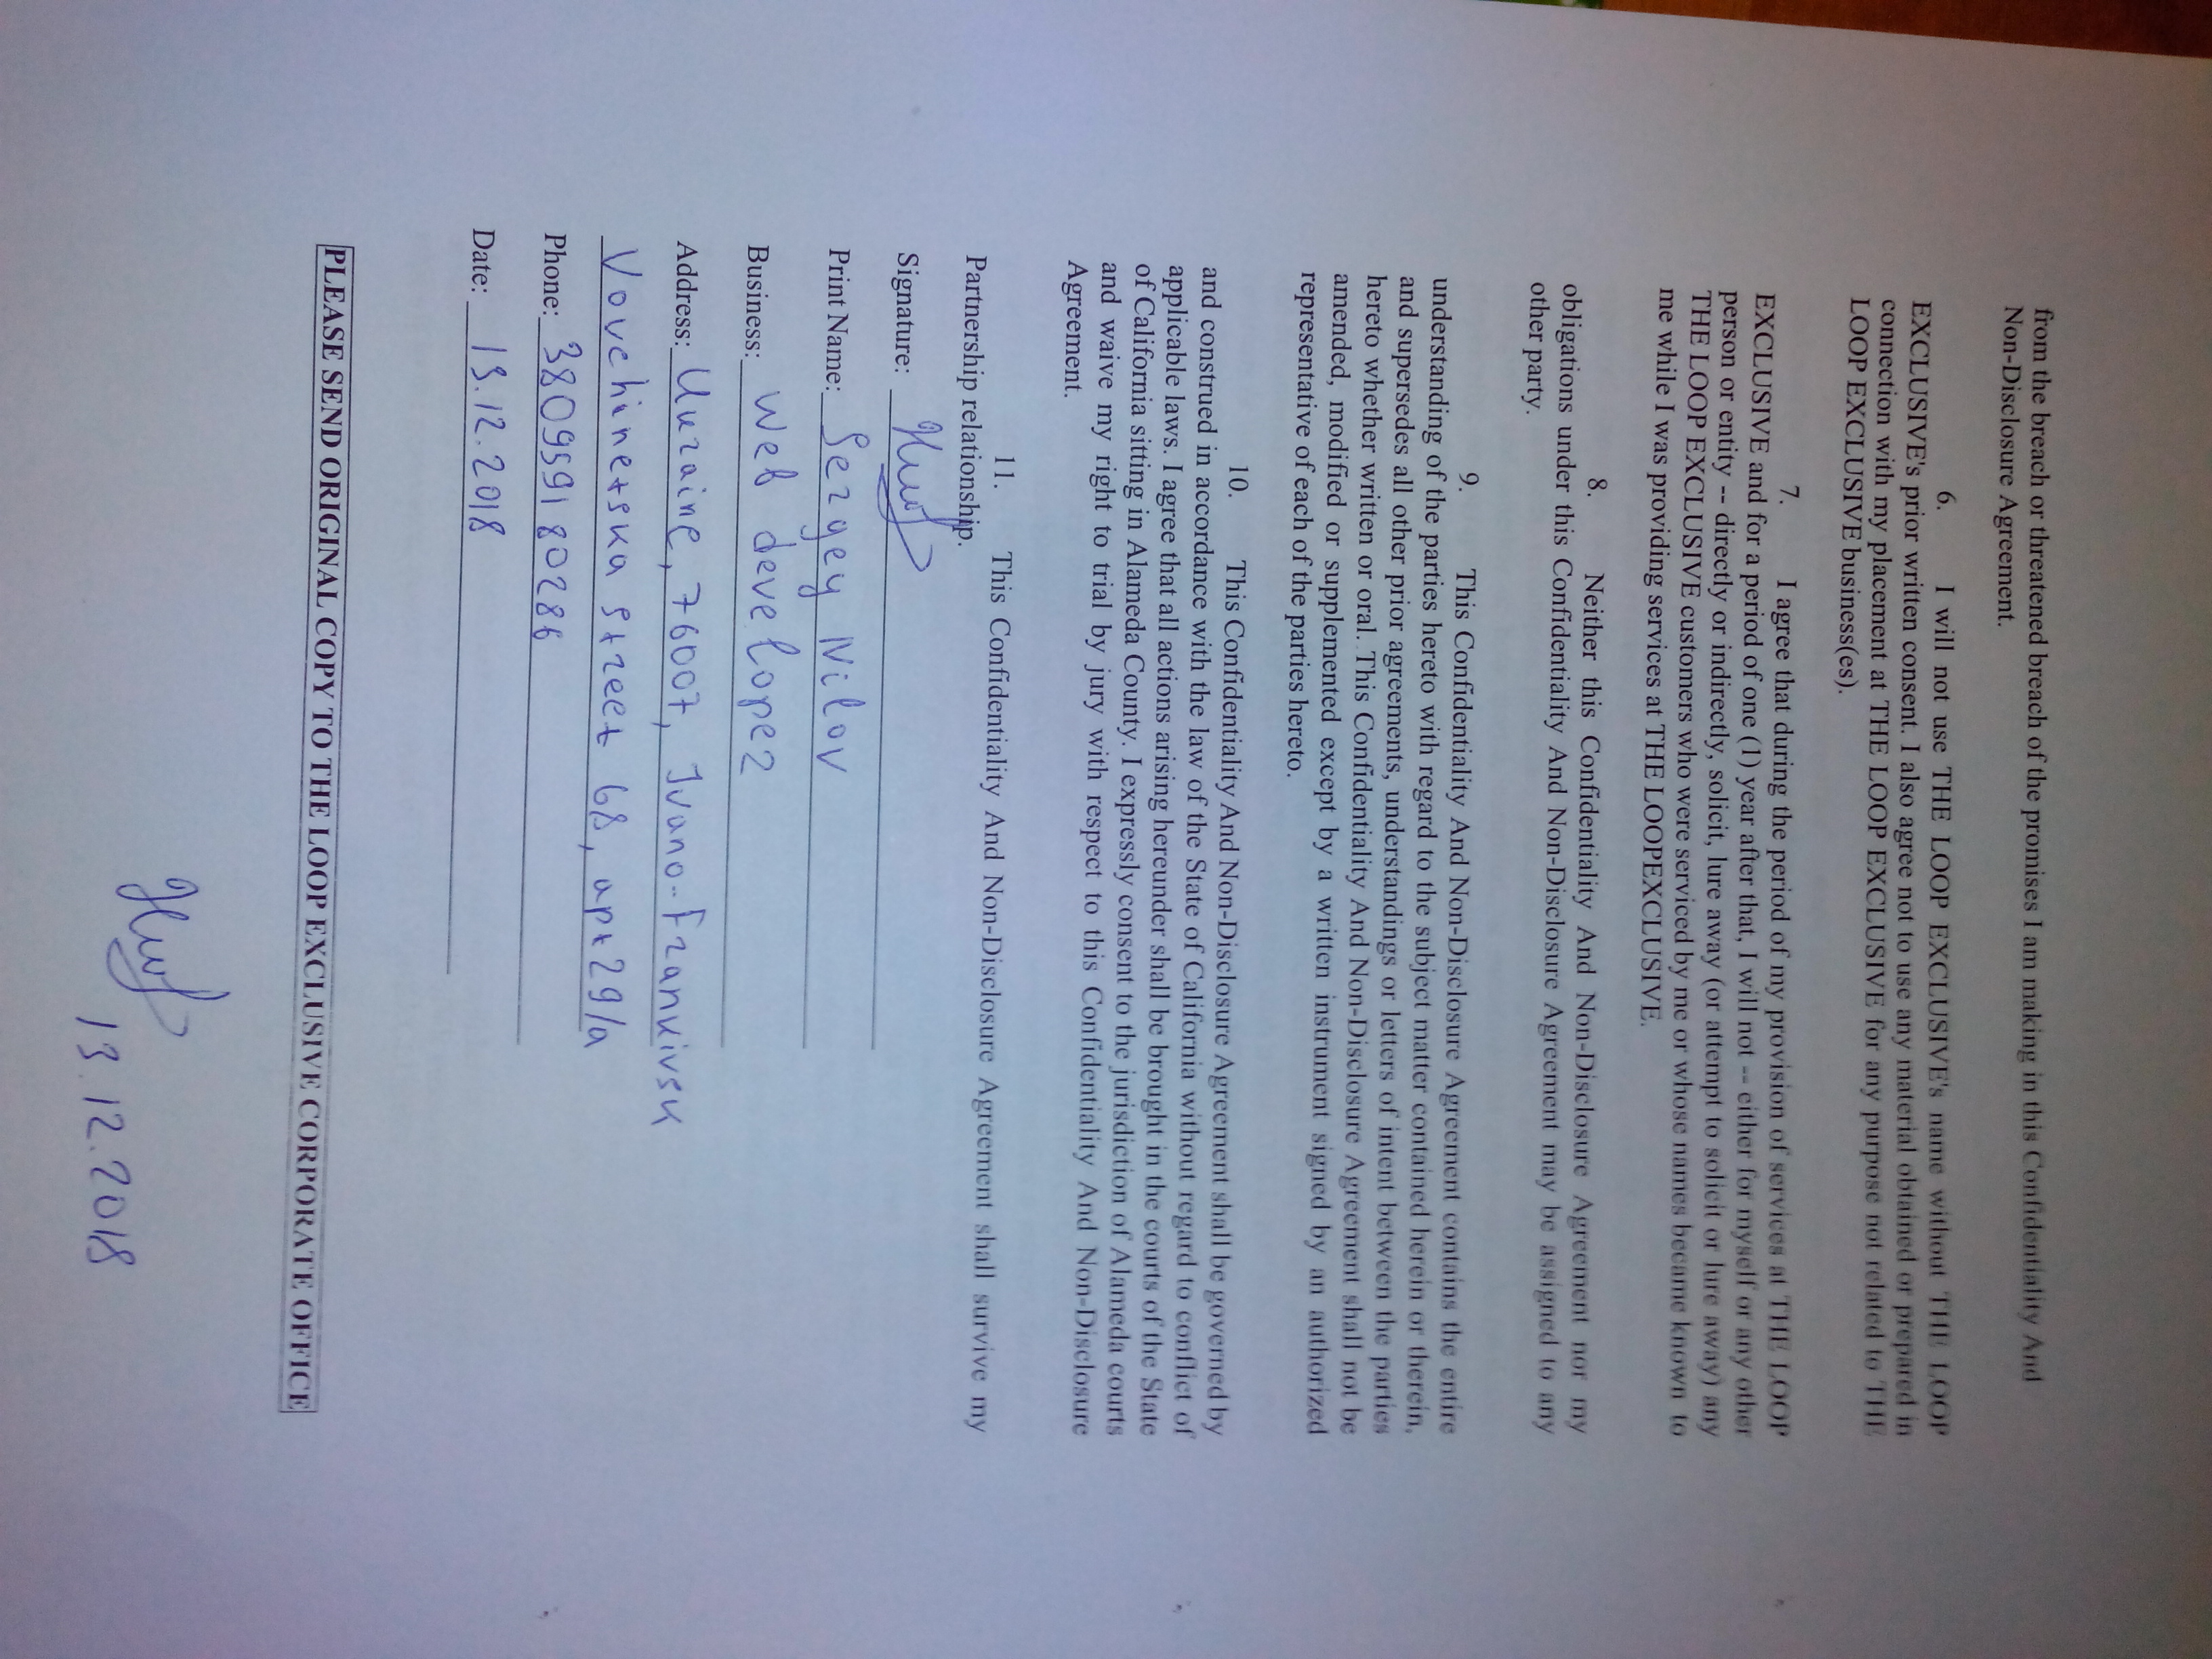 from the breach or threatened breach of the promises I am making in this Confidentiality And
Non-Disclosure Agreement.
6. I will not use THE LOOP EXCLUSIVE's name without THE LOOP
EXCLUSIVE's prior written consent. I also agree not to use any material obtained or prepared in
connection with my placement at THE LOOP EXCLUSIVE for any purpose not related to THE
LOOP EXCLUSIVE business(es).
7. I agree that during the period of my provision of services at THE LOOP
EXCLUSIVE and for a period of one (1) year after that, I will not -- either for myself or any other
person or entity -- directly or indirectly, solicit, lure away (or attempt to solicit or lure away) any
THE LOOP EXCLUSIVE customers who were serviced by me or whose names became known to
me while I was providing services at THE LOOPEXCLUSIVE.
8. Neither this Confidentiality And Non-Disclosure Agreement nor my
obligations under this Confidentiality And Non-Disclosure Agreement may be assigned to any
other party.
9. This Confidentiality And Non-Disclosure Agreement contains the entire
understanding of the parties hereto with regard to the subject matter contained herein or therein,
and supersedes all other prior agreements, understandings or letters of intent between the parties
hereto whether written or oral. This Confidentiality And Non-Disclosure Agreement shall not be
amended, modified or supplemented except by a written instrument signed by an authorized
representative of each of the parties hereto.
10. This Confidentiality And Non-Disclosure Agreement shall be governed by
and construed in accordance with the law of the State of California without regard to conflict of
applicable laws. I agree that all actions arising hereunder shall be brought in the courts of the State
of California sitting in Alameda County. I expressly consent to the jurisdiction of Alameda courts
and waive my right to trial by jury with respect to this Confidentiality And Non-Disclosure
Agreement.
11. This Confidentiality And Non-Disclosure Agreement shall survive my
Partnership relationship.
Signature:
Print Name: Sergey Nilov
Business: Web developer
Address: Ukraine, 76007, Ivano-Frankivsk
Vovchinetska street 68, apt 29/a
Phone: 380959180286
Date: 13.12.2018
PLEASE SEND ORIGINAL COPY TO THE LOOP EXCLUSIVE CORPORATE OFFICE
13.12.2018